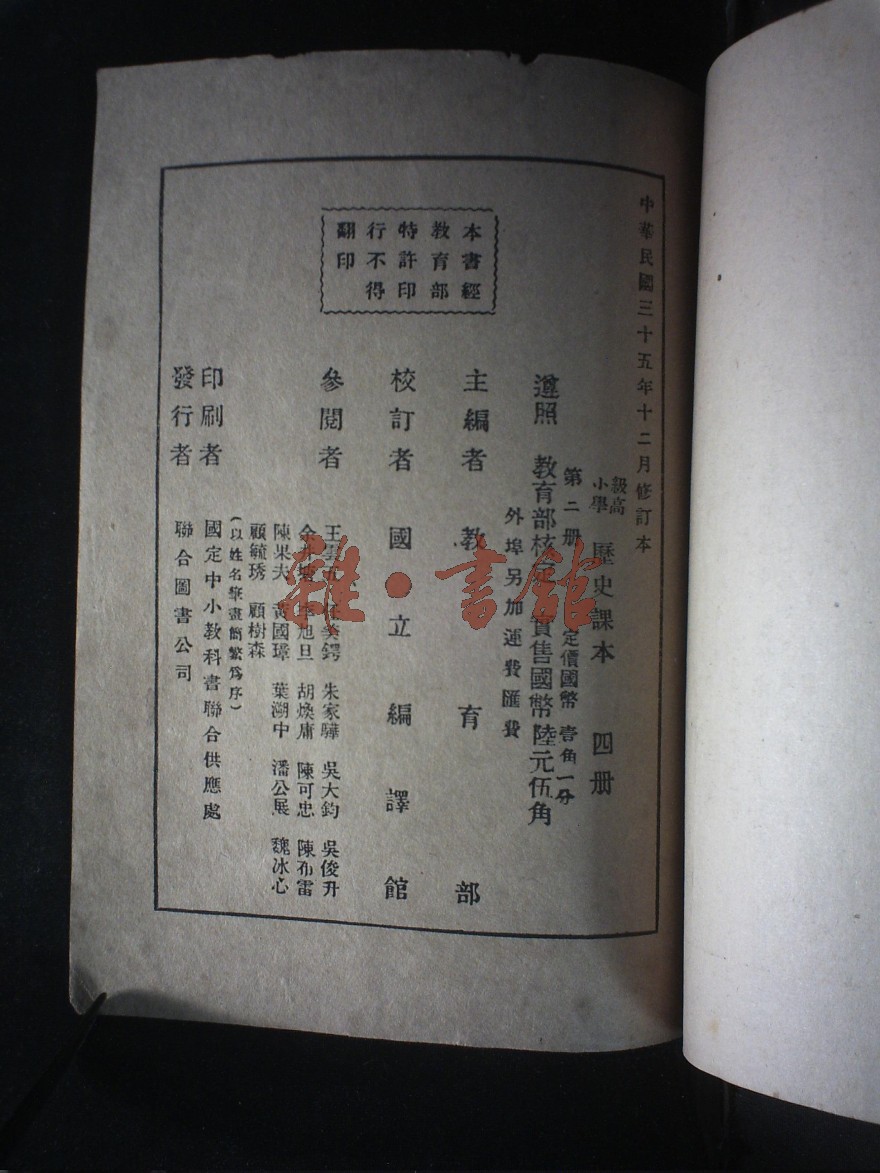 中華民國三十五年十二月修訂本
高級
小學
歷史課本 四册
第二册
定價國幣 壹角一分
遵照 教育部核 實售國幣陸元伍角
外埠另加運費匯費
主編者 教育部
校訂者 國立編譯館
參閱者
王 朱家驊 吳大鈞 吳俊升
余 旭旦 胡煥庸 陳可忠 陳布雷
陳果夫 黃國璋 葉溯中 潘公展 魏冰心
顧毓琇 顧樹森
(以姓名筆畫簡繁爲序)
印刷者 國定中小教科書聯合供應處
發行者 聯合圖書公司
本書經
教育部
特許印
行不得
翻印
雜·書館